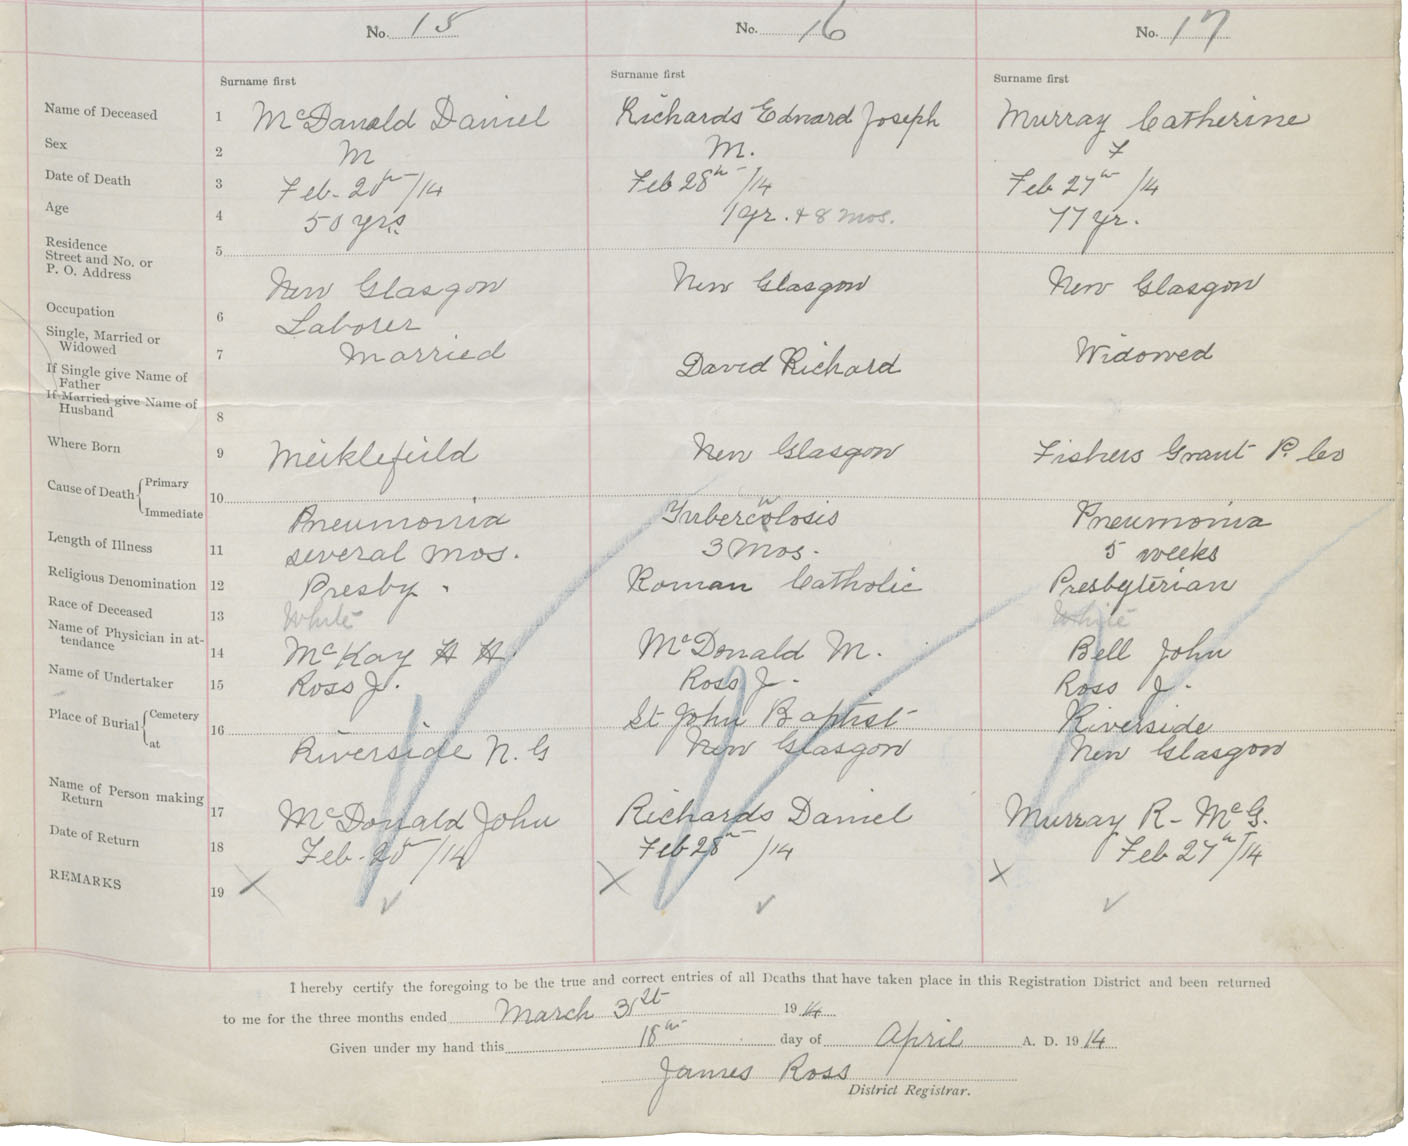 No. 15 No. 16 No. 17
Surname first Surname first Surname first
Name of Deceased 1 McDanald Daniel Richards Edward Joseph Murray Catherine
Sex 2 M M. F
Date of Death 3 Feb. 20th/14 Feb 28th/14 Feb 27th/14
Age 4 50 yrs 1 yr. & 8 mos. 77 yr.
Residence 5
Street and No. or
P. O. Address New Glasgow New Glasgow New Glasgow
Occupation 6 Laborer
Single, Married or
Widowed 7 Married David Richard Widowed
If Single give Name of
Father
If Married give Name of
Husband 8
Where Born 9 Meiklefield New Glasgow Fishers Grant P. Co
Cause of Death Primary 10
Immediate Pneumonia Tuberculosis Pneumonia
Length of Illness 11 several mos. 3 Mos. 5 weeks
Religious Denomination 12 Presby. Roman Catholic Presbyterian
Race of Deceased 13 White White
Name of Physician in at-
tendance 14 McKay H H. McDonald M. Bell John
Name of Undertaker 15 Ross J. Ross J. Ross J.
Place of Burial Cemetery 16 St John Baptist Riverside
at Riverside N. G New Glasgow New Glasgow
Name of Person making
Return 17 McDonald John Richards Daniel Murray R- McG.
Date of Return 18 Feb. 20/14 Feb 28th/14 Feb 27th/14
REMARKS 19
I hereby certify the foregoing to be the true and correct entries of all Deaths that have taken place in this Registration District and been returned
to me for the three months ended March 31st 1914
Given under my hand this 18th day of April A. D. 1914
James Ross
District Registrar.